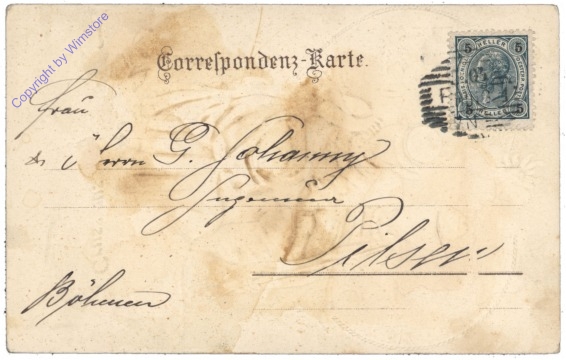 Copyright by Wimstore
Correspondenz-Karte.
5 HELLER 5
Frau
Herrn G. Johanny
Ingenieur
Pilsen
Böhmen